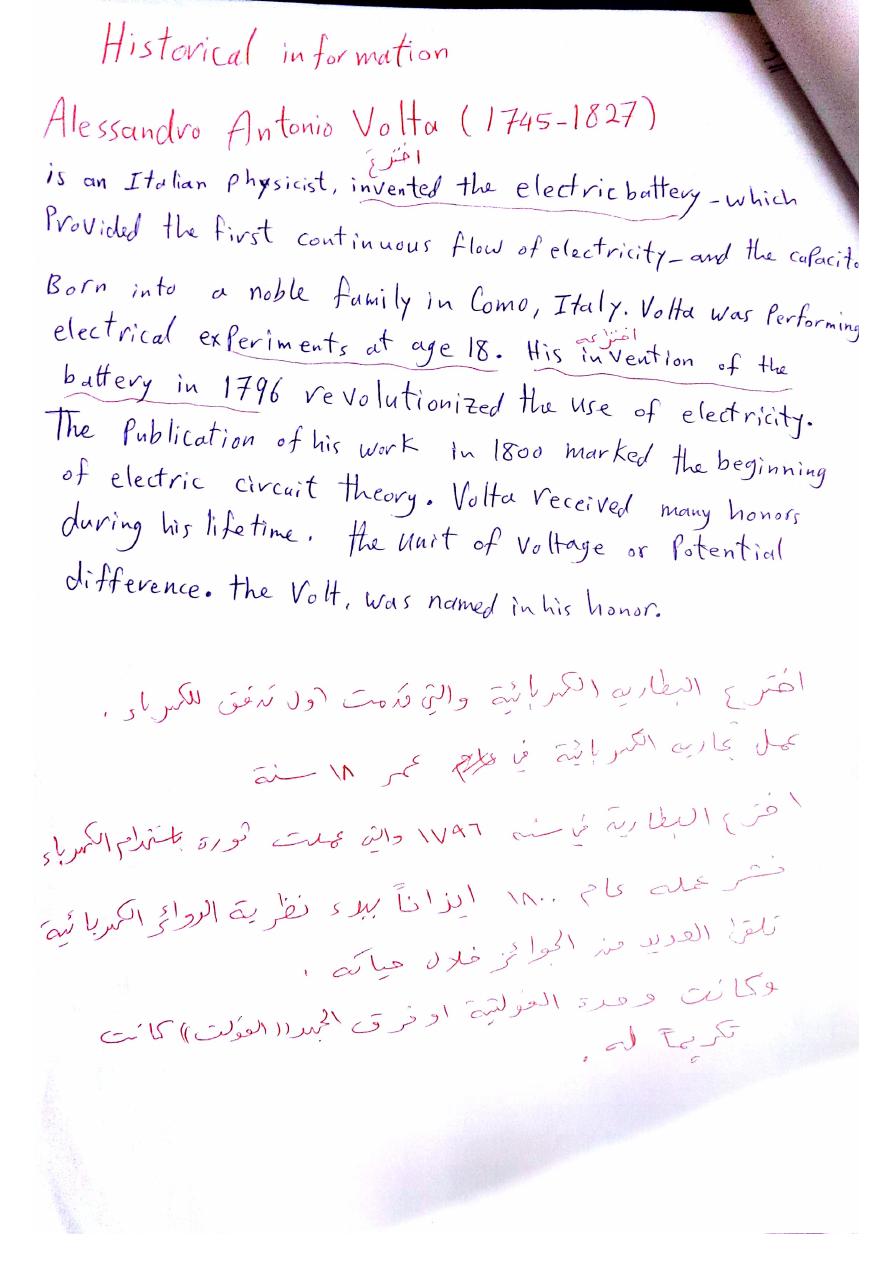 Historical information
Alessandro Antonio Volta (1745-1827)
اخترع
is an Italian physicist, invented the electric battery - which
Provided the first continuous flow of electricity - and the capacito
Born into a noble family in Como, Italy. Volta was Performing
electrical experiments at age 18. His invention of the
اختراعه
battery in 1796 revolutionized the use of electricity.
The Publication of his work in 1800 marked the beginning
of electric circuit theory. Volta received many honors
during his lifetime. the unit of voltage or Potential
difference. the Volt, was named in his honor.
اخترع البطاريه الكهربائية والتي قدمت اول تدفق للكهرباء .
عمل تجاربه الكهربائية في عمر ١٨ سنة
اخترع البطارية في سنه ١٧٩٦ والتي عملت ثورة باستخدام الكهرباء
نشر عمله عام ١٨٠٠ ايذاناً ببدء نظرية الدوائر الكهربائية
تلقى العديد من الجوائز خلال حياته .
وكانت وحدة الفولتية او فرق الجهد ((الفولت)) كانت
تكريماً له .